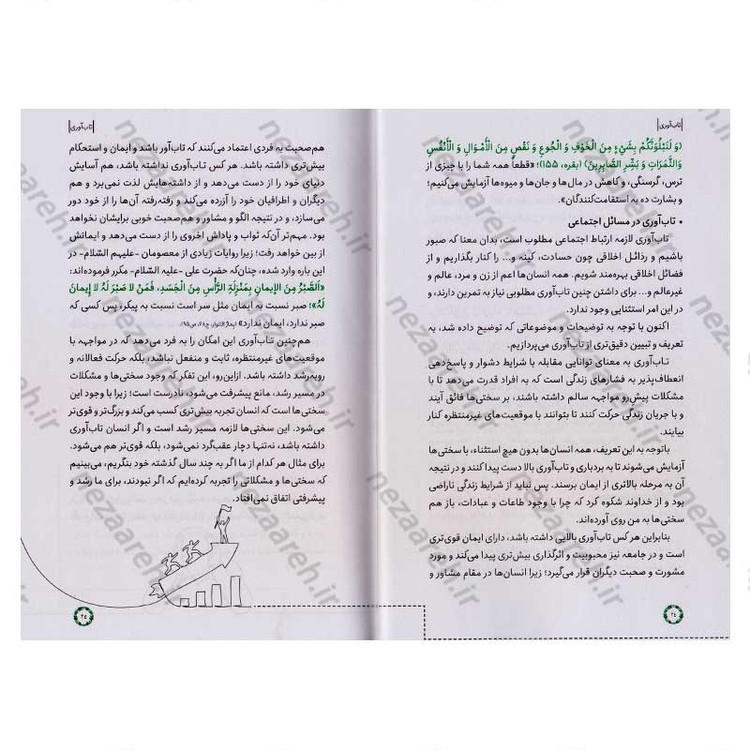 |تاب‌آوری|
﴿وَ لَنَبْلُوَنَّكُمْ بِشَيْءٍ مِنَ الْخَوْفِ وَ الْجُوعِ وَ نَقْصٍ مِنَ الْأَمْوَالِ وَ الْأَنْفُسِ
وَالثَّمَرَاتِ وَ بَشِّرِ الصَّابِرِينَ﴾ (بقره، ۱۵۵)؛ «قطعاً همه شما را با چیزی از
ترس، گرسنگی، و کاهش در مال‌ها و جان‌ها و میوه‌ها آزمایش می‌کنیم؛
و بشارت ده به استقامت‌کنندگان».
• تاب‌آوری در مسائل اجتماعی
تاب‌آوری لازمه ارتباط اجتماعی مطلوب است، بدان معنا که صبور
باشیم و رذائل اخلاقی چون حسادت، کینه و... را کنار بگذاریم و از
فضائل اخلاقی بهره‌مند شویم. همه انسان‌ها اعم از زن و مرد، عالم و
غیرعالم و... برای داشتن چنین تاب‌آوری مطلوبی نیاز به تمرین دارند، و
در این امر استثنایی وجود ندارد.
اکنون با توجه به توضیحات و موضوعاتی که توضیح داده شد، به
تعریف و تبیین دقیق‌تری از تاب‌آوری می‌پردازیم.
تاب‌آوری به معنای توانایی مقابله با شرایط دشوار و پاسخ‌دهی
انعطاف‌پذیر به فشارهای زندگی است که به افراد قدرت می‌دهد تا با
مشکلات پیش‌رو مواجهه سالم داشته باشند، بر سختی‌ها فائق آیند
و با جریان زندگی حرکت کنند تا بتوانند با موقعیت‌های غیرمنتظره کنار
بیایند.
باتوجه به این تعریف، همه انسان‌ها بدون هیچ استثناء، با سختی‌ها
آزمایش می‌شوند تا به بردباری و تاب‌آوری بالا دست پیدا کنند و در نتیجه
آن به مرحله بالاتری از ایمان برسند. پس نباید از شرایط زندگی ناراضی
بود و از خداوند شکوه کرد که چرا با وجود طاعات و عبادات، باز هم
سختی‌ها به من روی آورده‌اند.
بنابراین هر کس تاب‌آوری بالایی داشته باشد، دارای ایمان قوی‌تری
است و در جامعه نیز محبوبیت و اثرگذاری بیش‌تری پیدا می‌کند و مورد
مشورت و صحبت دیگران قرار می‌گیرد؛ زیرا انسان‌ها در مقام مشاور و
|تاب‌آوری|
هم‌صحبت به فردی اعتماد می‌کنند که تاب‌آور باشد و ایمان و استحکام
بیش‌تری داشته باشد. هر کس تاب‌آوری نداشته باشد، هم آسایش
دنیای خود را از دست می‌دهد و از داشته‌هایش لذت نمی‌برد و هم
دیگران و اطرافیان خود را آزرده می‌کند و رفته‌رفته آن‌ها را از خود دور
می‌سازد، و در نتیجه الگو و مشاور و هم‌صحبت خوبی برایشان نخواهد
بود. مهم‌تر آن‌که ثواب و پاداش اخروی را از دست می‌دهد و ایمانش
از بین خواهد رفت؛ زیرا روایات زیادی از معصومان -علیهم السّلام- در
این باره وارد شده، چنان‌که حضرت علی -علیه السّلام- مکرر فرموده‌اند:
«اَلصَّبْرُ مِنَ الإِيمانِ بِمَنْزِلَةِ الرَّأْسِ مِنَ الْجَسَدِ، فَمَنْ لا صَبْرَ لَهُ لا إِيمانَ
لَهُ»؛ صبر نسبت به ایمان مثل سر است نسبت به پیکر، پس کسی که
صبر ندارد، ایمان ندارد»
هم‌چنین تاب‌آوری این امکان را به فرد می‌دهد که در مواجهه با
موقعیت‌های غیرمنتظره، ثابت و منفعل نباشد، بلکه حرکت فعالانه و
روبه‌رشد داشته باشد. ازاین‌رو، این تفکر که وجود سختی‌ها و مشکلات
در مسیر رشد، مانع پیشرفت می‌شود، نادرست است؛ زیرا با وجود این
سختی‌ها است که انسان تجربه بیش‌تری کسب می‌کند و بزرگ‌تر و قوی‌تر
می‌شود. این سختی‌ها لازمه مسیر رشد است و اگر انسان تاب‌آوری
داشته باشد، نه‌تنها دچار عقب‌گرد نمی‌شود، بلکه قوی‌تر هم می‌شود.
برای مثال هر کدام از ما اگر به چند سال گذشته خود بنگریم، می‌بینیم
که سختی‌ها و مشکلاتی را تجربه کرده‌ایم که اگر نبودند، برای ما رشد و
پیشرفتی اتفاق نمی‌افتاد.
nezaareh.ir